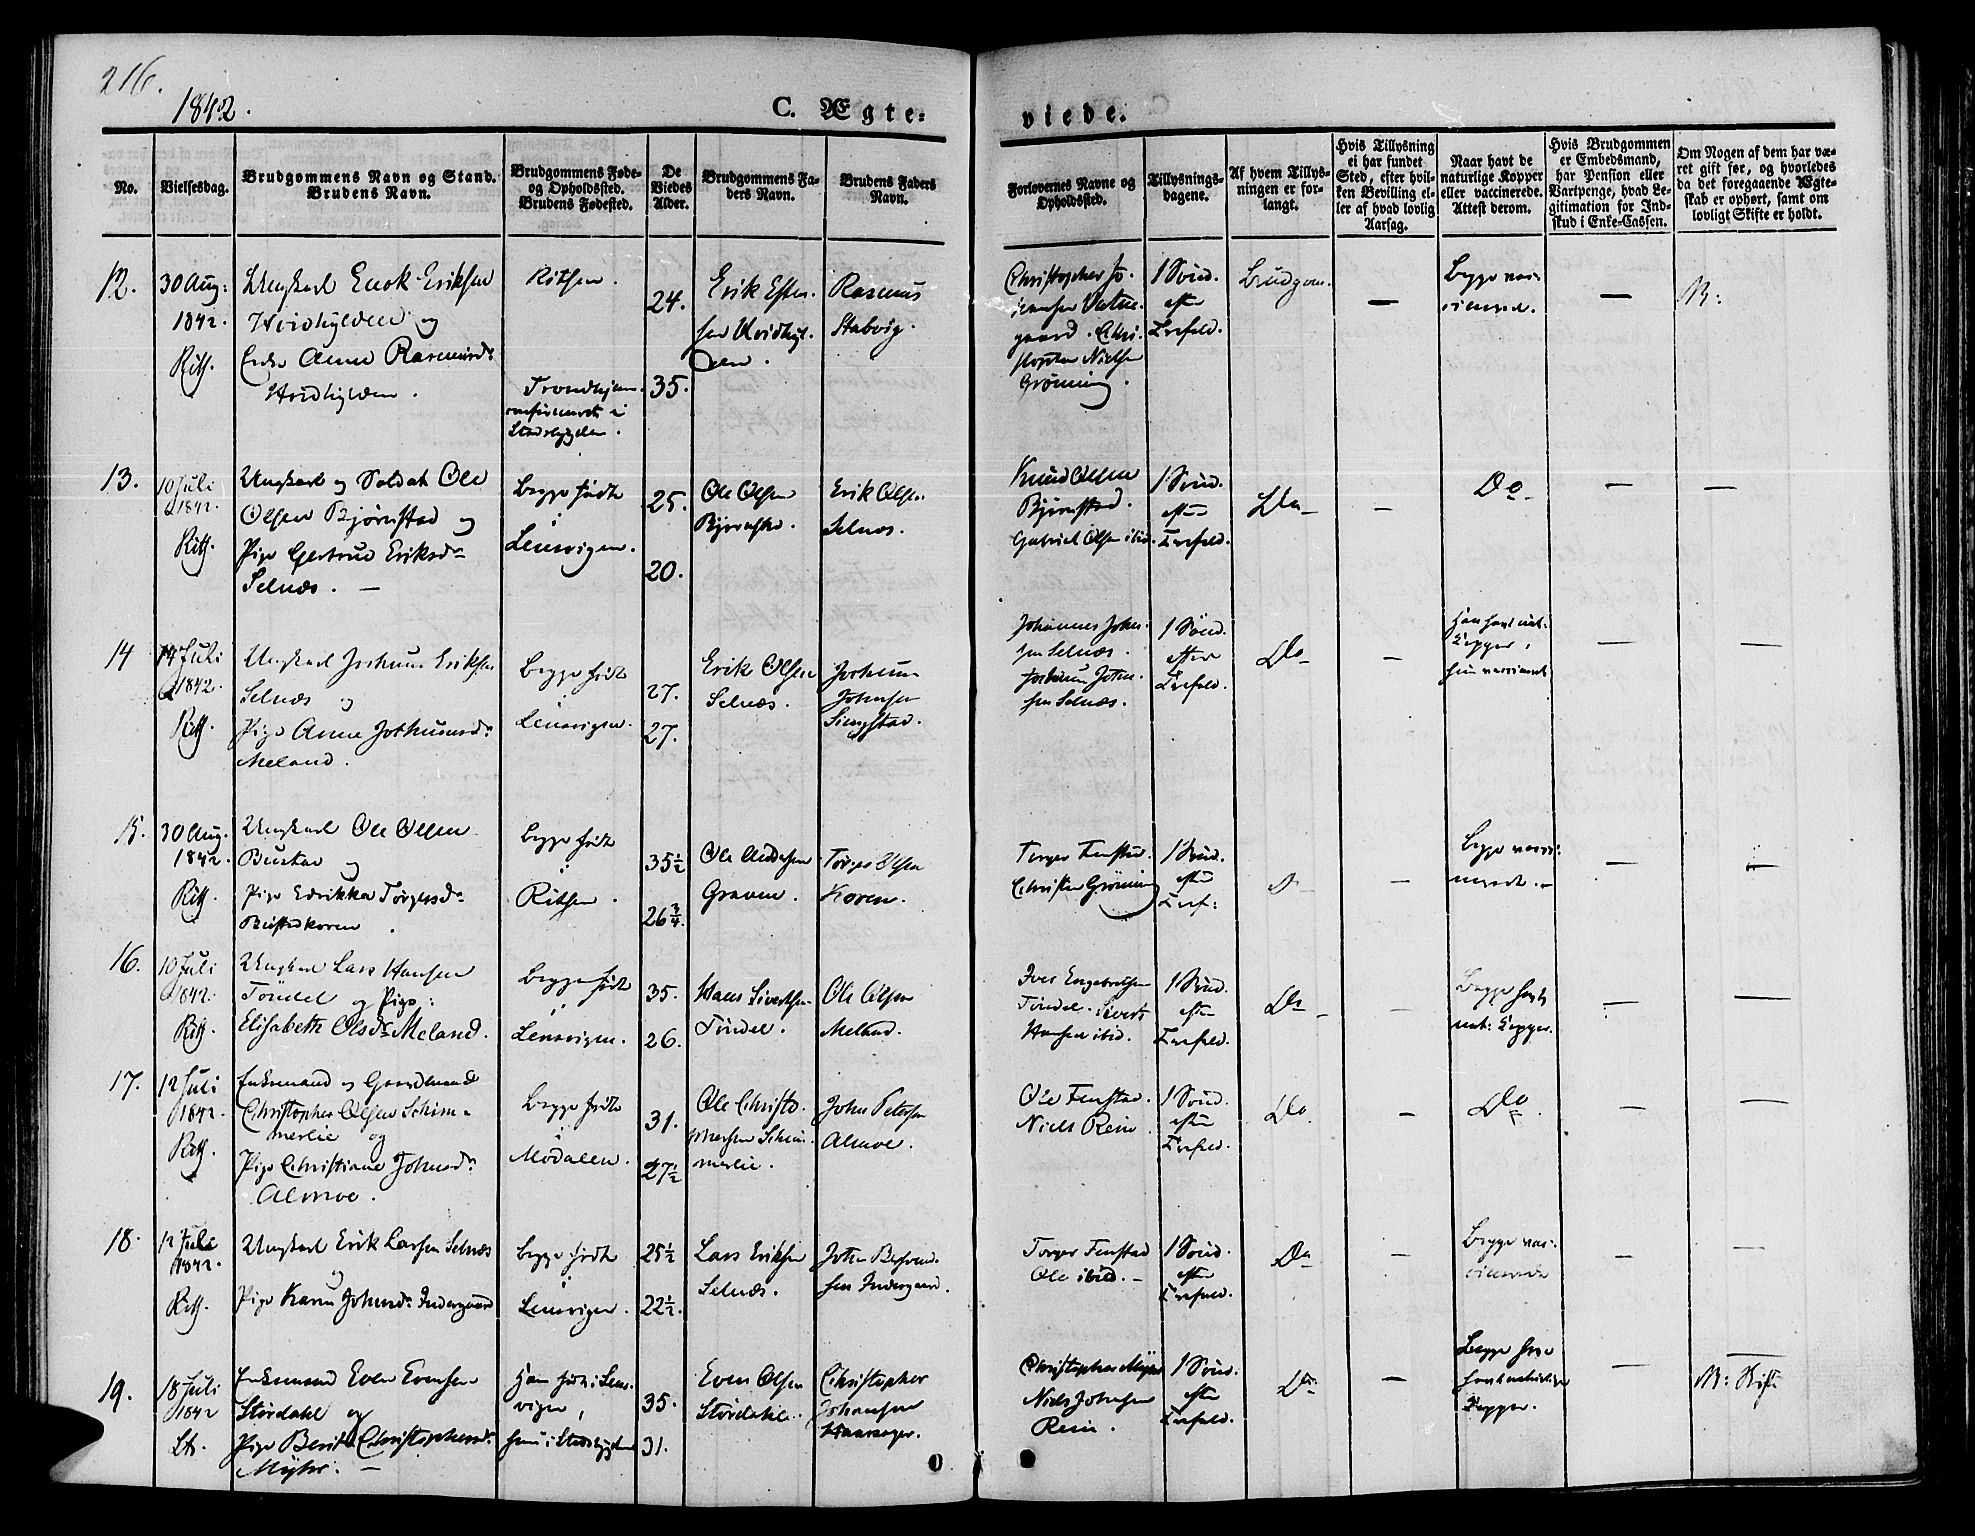 216.
1842.
C. Ægte-
viede.
No.
Vielsesdag.
Brudgommens Navn og Stand.
Brudens Navn.
Brudgommens Føde-
og Opholdssted.
Brudens Fødested.
De
Viedes
Alder.
Brudgommens Fa-
ders Navn.
Brudens Faders
Navn.
Forlovernes Navne og
Opholdssted.
Tillysnings-
dagene.
Af hvem Tillys-
ningen er for-
langt.
Hvis Tillysning
ei har fundet
Sted, efter hvil-
ken Bevilling el-
ler af hvad lovlig
Aarsag.
Naar havt de
naturlige Kopper
eller vaccinerede.
Attest derom.
Hvis Brudgommen
er Embedsmand,
har Pension eller
Vartpenge, hvad Le-
gitimation for Ind-
skud i Enke-Cassen.
Om Nogen af dem har væ-
ret gift før, og hvorledes
da det foregaaende Ægte-
skab er ophørt, samt om
lovligt Skifte er holdt.
12.
30 Aug:
1842.
Rith.
Ungkarl Enok Eriksen
Hvidhylden og
Enke Anne Rasmusd:
Hvidhylden.
Ritsen.
Trondhjem
i
Stadsbygden.
24.
35.
Erik
Hvidhyl-
den.
Rasmus
Stabvig.
Christopher Jo-
gaard. Chri-
Nielsen
Grønning.
1 Sønd.
efter
Trefold.
Brudgom.
—
Begge vac-
cinered.
—
13.
10 Juli
1842.
Rith.
Ungkarl og Soldat Ole
Olsen Bjørnstad og
Pige Gertrud Eriksd:
Selnæs. —
Begge født
i
Lensvigen.
25.
20.
Ole Olsen
Erik Olsen
Selnæs.
Knud Olsen
Bjørnstad.
Gabriel Olsen ibid.
1 Sønd.
efter
Trefold.
Do
—
Do
—
—
14
14 Juli
1842.
Rith.
Ungkarl Eriksen
Selnæs og
Pige Anne
Meland.
Begge født
i
Lensvigen.
27.
27.
Erik Olsen
Selnæs.
Johnsen
Singstad.
Johannes John-
sen Selnæs.
sen Selnæs.
1 Sønd.
efter
Trefold.
Do
—
Kopper,
—
—
15.
30 Aug.
1842.
Rith.
Ungkarl Ole Olsen
Bustad og
Pige Edrikka Torgersd:
Begge født
i
Ritsen.
35 1/2
26 3/4.
Ole Andersen
Graven.
Torger Olsen
Koren.
Torger Fenstad.
Christen Grønning
1 Sønd.
efter
Tref:
Do
—
Begge vacci-
nered. —
—
—
16.
10 Juli
1842.
Rith.
Ungkarl Lars Hansen
Tøndel og Pige:
Elisabeth Olsd: Meland.
Begge født
i
Lensvigen.
35.
26.
Hans Sivertsen
Tøndel.
Ole Olsen
Meland.
Iver Engebretsen
Tøndel. Sivert
Hansen ibid.
1 Sønd.
efter
Trefold.
Do
—
Begge havt
nat: Kopper.
—
—
17.
12 Juli
1842.
Rith.
Enkemand og Gaardmand
Christopher Olsen Schim-
merlie og
Pige Christiane Johnsd:
Almoe.
Begge født
i
Mødalen.
31.
27 1/2
Ole Christo-
phersen Schim-
merlie.
John Petersen
Almoe.
Ole Fenstad.
Niels Rein
1 Sønd.
efter
Trefold.
Do
—
Do.
—
—
18.
12 Juli
1842.
Rith.
Ungkarl Erik Larsen Selnæs
og
Pige Karen Johnsd: Indergaard
Begge født
i
Lensvigen.
25 1/2
22 1/2.
Lars Eriksen
Selnæs.
sen Indergaard.
Torger Fenstad
Ole ibid. —
1 Sønd.
efter
Trefold.
Do
—
Begge vac-
cinerede
—
—
19.
18 Juli
1842
Enkemand Even Evensen
Størdahl og
Pige Berit Christophersd:
Myhr. —
Han født i Lens-
vigen,
hun i Stadsbygden
35.
31.
Even Olsen
Størdahl.
Christopher
Johansen
Christopher Myhr
Niels Johnsen
Rein.
1 Sønd.
efter
Trefold.
Do
—
Begge
Kopper.
—